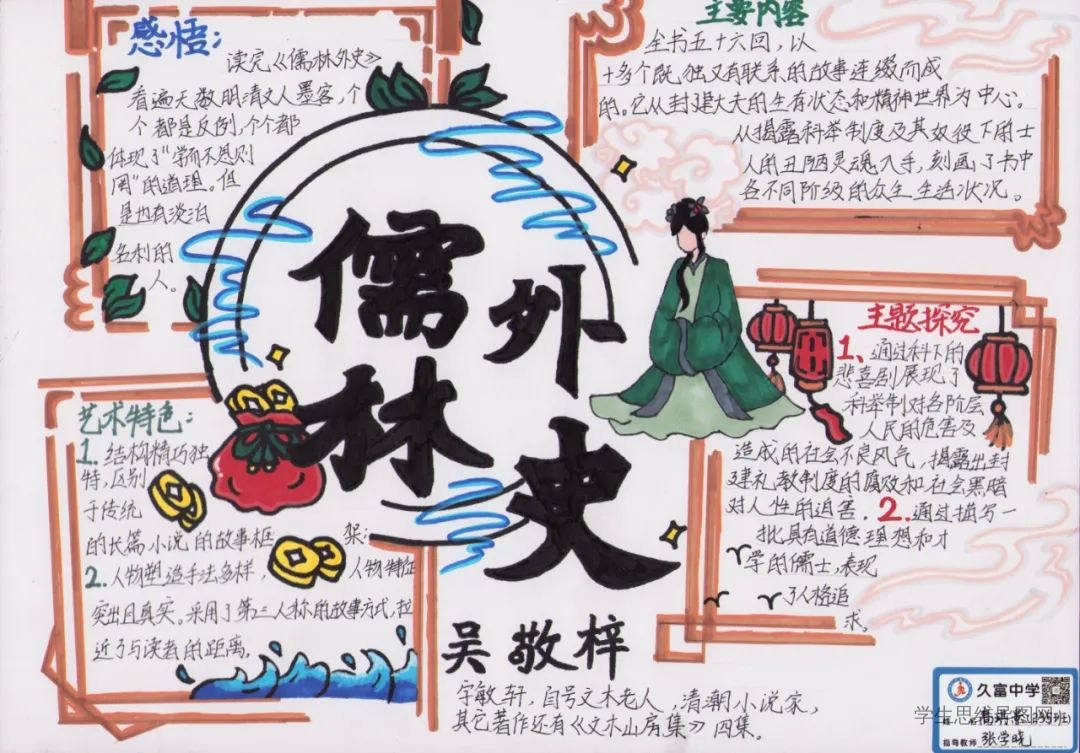 感悟：
读完《儒林外史》
看遍天敬明清文人墨客，个
个都是反例，个个都
体现了“学而不思则
罔”的道理。但
是也有淡泊
名利的
人。
主要内容
全书五十六回，以
十多个既独又有联系的故事连缀而成
的。它从封建大夫的生存状态和精神世界为中心。
从揭露科举制度及其奴役下的士
人的丑陋灵魂入手，刻画了书中
各不同阶级的众生生活状况。
儒林
外史
艺术特色：
1.结构精巧独
特，区别
于传统
的长篇小说的故事框架；
2.人物塑造手法多样，人物特征
突出且真实。采用了第三人称的故事方式，拉
近了与读者的距离。
主题探究
1、通过科下的
悲喜剧展现了
科举制对各阶层
人民的危害及
造成的社会不良风气，揭露出封
建礼教制度的腐败和社会黑暗
对人性的迫害。2.通过描写一
批具有道德理想和才
学的儒士，表现
了人格追
求。
吴敬梓
字敏轩，自号文木老人，清潮小说家，
其它著作还有《文木山房集》四集。
久富中学
学生思维导图网
指导教师 张学晓